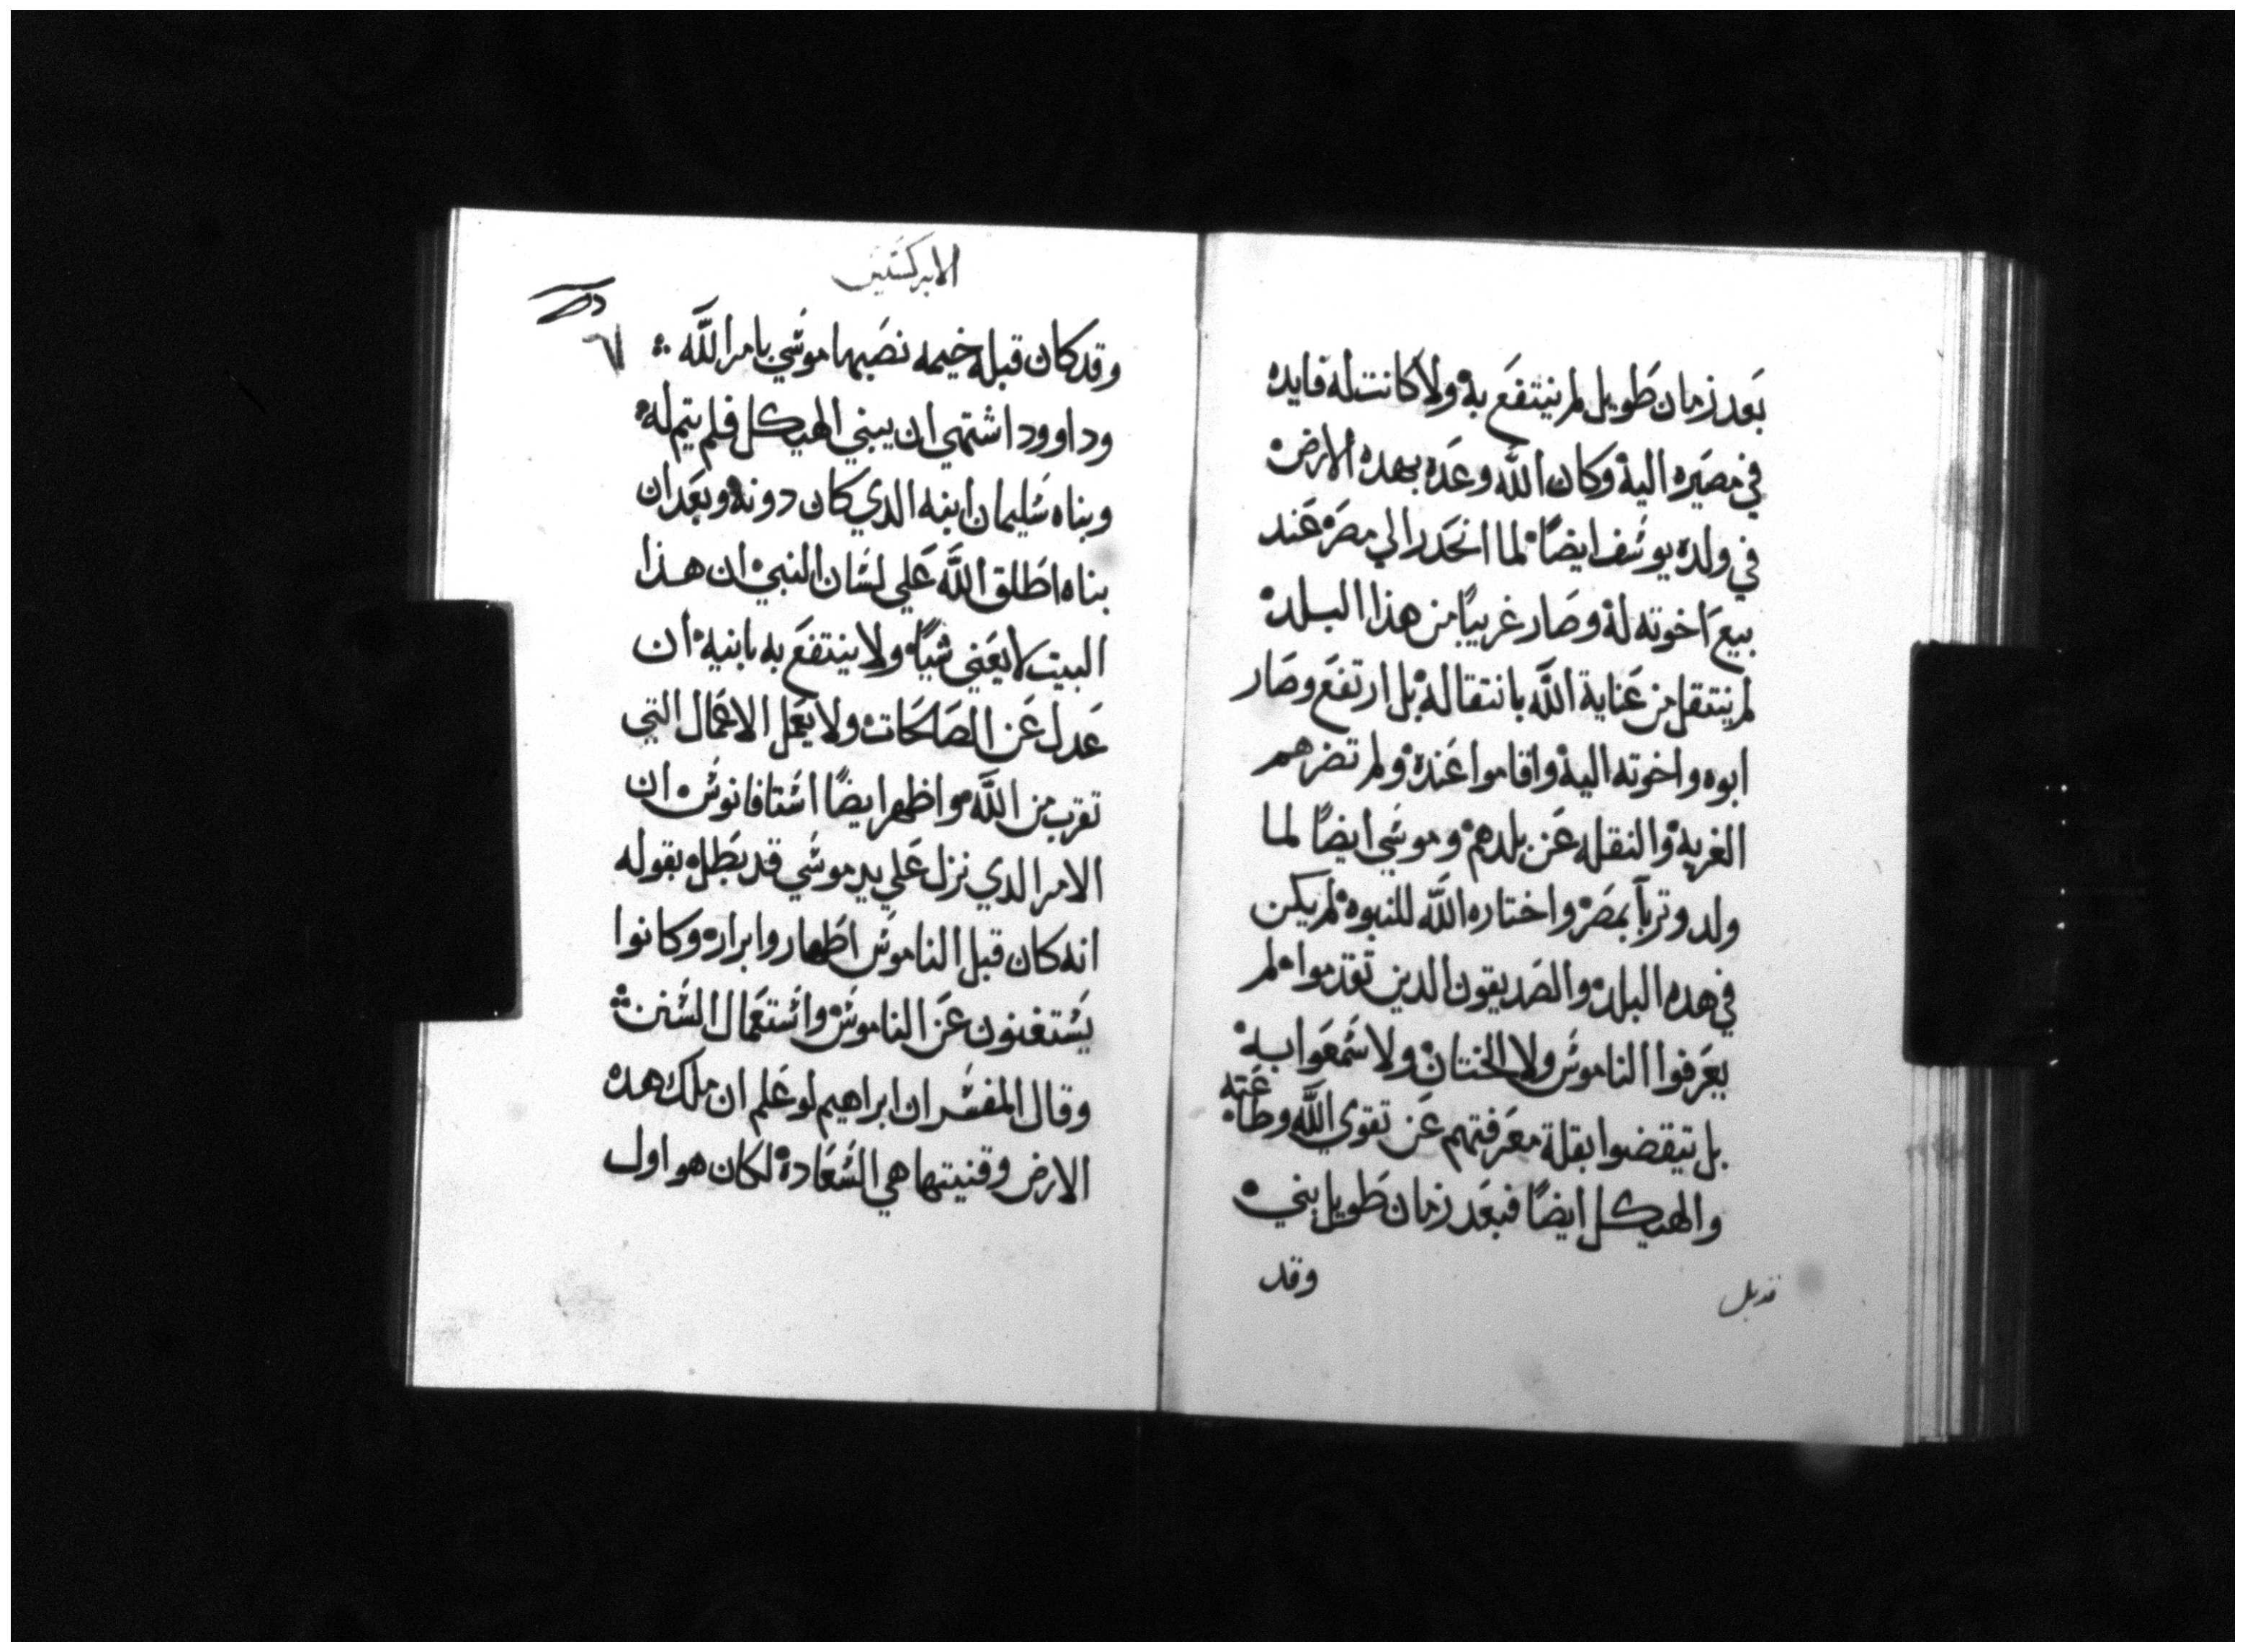 بعد زمان طويل لم ينتفع به ولا كانت له فايده
في مصيره اليه وكان الله وعده بهده الارض
في ولده يوسف ايضًا لما انحدر الي مصر عند
بيع اخوته له وصار غريبًا من هذا البلد
لم ينتقل من عناية الله بانتقاله بل ارتفع وصار
ابوه واخوته اليه واقاموا عنده ولم تضرهم
الغربه والنقله عن بلدهم وموسي ايضًا لما
ولد وتربا بمصر واختاره الله للنبوه لم يكن
في هده البلد والصديقون الدين تقدموا لم
يعرفوا الناموس ولا الختان ولا سمعوا به
بل تيقضوا بقلة معرفتهم عن تقوي الله وطاعته
والهيكل ايضًا فبعد زمان طويل بني
وقد
الابركسيس
٦١
وقد كان قبله خيمه نصبها موسي بامر الله
وداوود اشتهي ان يبني الهيكل فلم يتم له
وبناه سليمان ابنه الدي كان دونه وبعد ان
بناه اطلق الله علي لسان النبي ان هذا
البيت لا يعني شيًا ولا ينتفع به بانيه ان
عدل عن الصالحات ولا يعمل الاعمال التي
تقرب من الله واظهر ايضًا استافانوس ان
الامر الدي نزل علي يد موسي قد بطل بقوله
انه كان قبل الناموس اطهار وابرار وكانوا
يستغنون عن الناموس واستعمال السنن
وقال المفسر ان ابراهيم لو علم ان ملك هده
الارض وقنيتها هي السعادة لكان هو اول